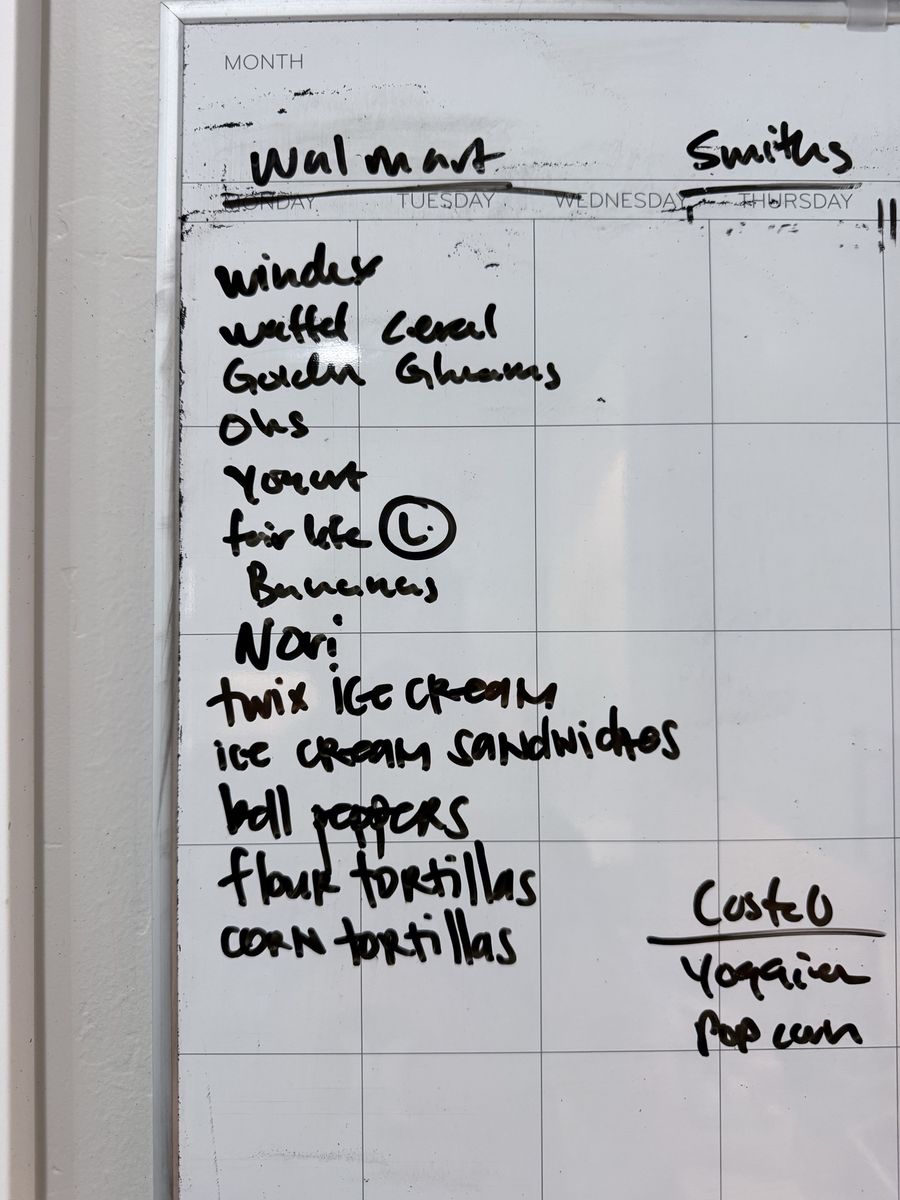 MONTH
Walmart
Smiths
MONDAY TUESDAY WEDNESDAY THURSDAY
windex
waffel Cereal
Golden Ghrams
Ohs
Yogurt
fairlife L.
Bananas
Nori
twix ice cream
ice cream sandwiches
bell peppers
flour tortillas
corn tortillas
Costco
pop corn